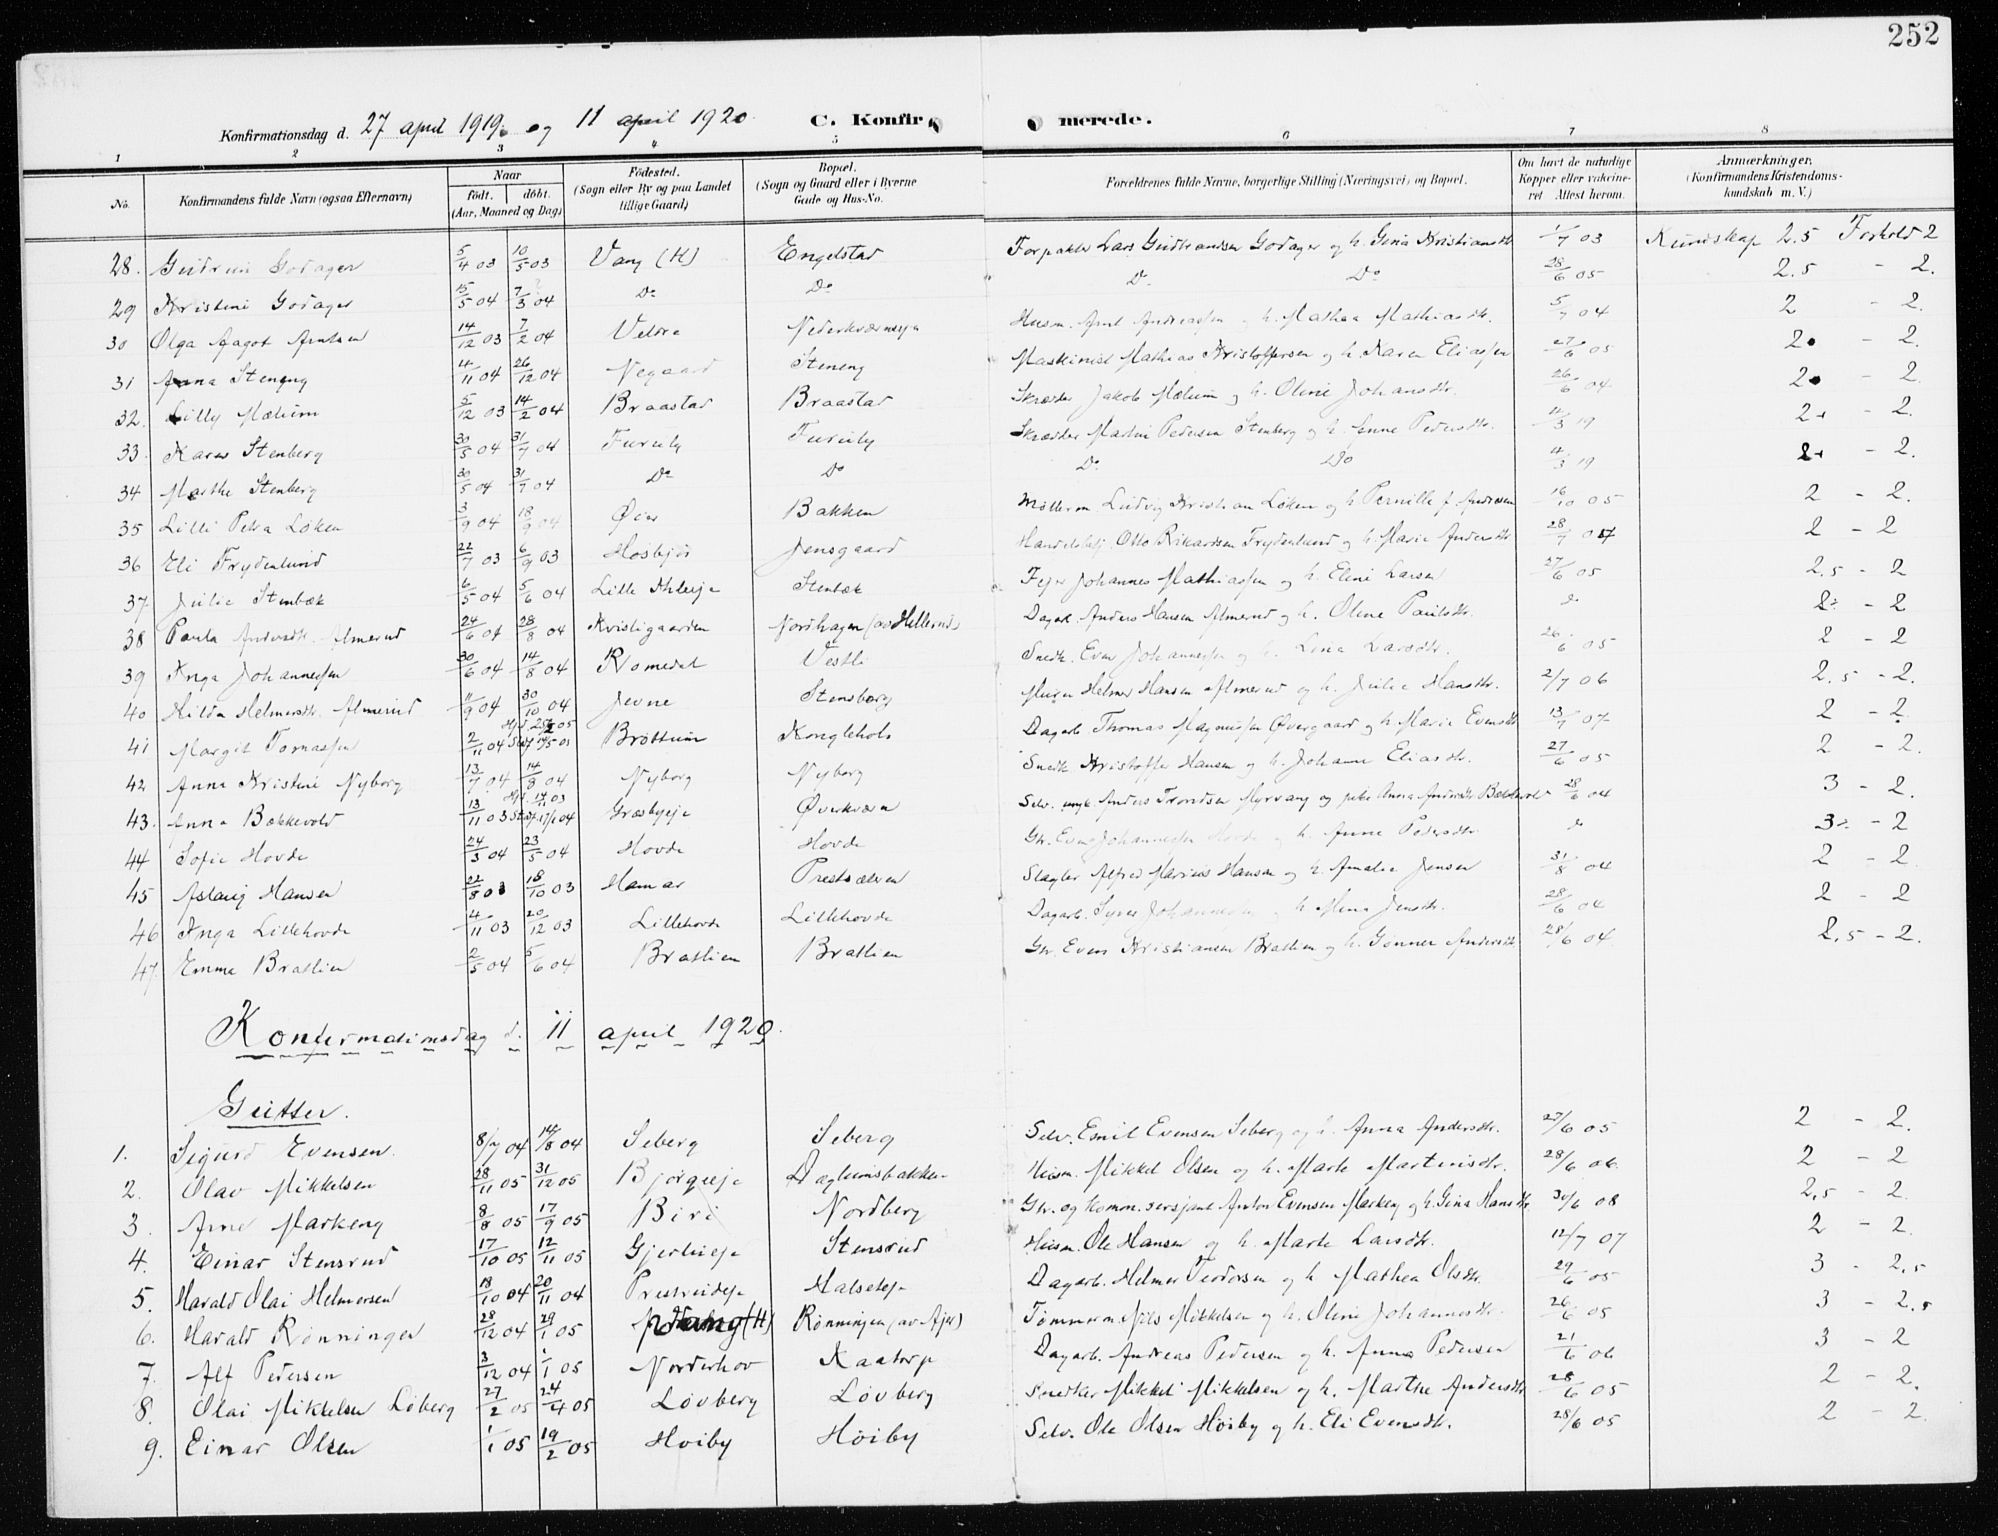 252
Konfirmationsdag d. 27 april 1919 og 11 april 1920 C. Konfirmerede.
1 2 3 4 5 6 7 8
No. Konfirmandens fulde Navn (ogsaa Efternavn) Naar født. døbt. (Aar, Maaned og Dag) Fødested. (Sogn eller By og paa Landet tillige Gaard) Bopæl. (Sogn og Gaard eller i Byerne Gade og Hus-No. Forældrenes fulde Navne, borgerlige Stilling (Næringsvei) og Bopæl. Om havt de naturlige Kopper eller vaccineret Attest herom. Anmærkninger. (Konfirmandens Kristendomskundskab m. V.)
28. Gudrun Godager 5/4 03 10/5 03 Vang (H) Engelstad Forpakter Lars Gudbrandsen Godager og h. Gina Kristiansdtr. 1/7 03 Kundskap 2.5 Forhold 2
29 Kristine Godager 15/5 04 7/3 04 Do Do Do Do 28/6 05 2.5 - 2.
30 Olga Aagot Arntsen 14/12 03 7/2 04 Veldre Husm. Arnt Andreassen og h. Mathea Mathiasdtr. 5/7 04 2 - 2.
31 Anna Steneng 4/11 04 26/12 04 Negaard Steneng Maskinist Mathias Kristoffersen og h. Karen Eliassen 27/6 05 2. - 2.
32. Lilly Mælum 5/12 03 14/2 04 Braastad Braastad Skrædder Jakob Mælum og h. Oline Johansdtr. 26/6 04 2. - 2
33. Karen Stenberg 30/5 04 31/7 04 Furuly Furuly Skrædder Martin Pedersen Stenberg og h. Anne Pedersdtr. 4/3 19 2. - 2.
34 Marthe Stenberg 30/5 04 31/7 04 Do Do Do Do 4/3 19 2. - 2.
35 Lilli Petra Løken 3/9 04 18/9 04 Øier Bakken Møllerm. Ludvig Kristian Løken og h. Pernille f. Andresen 16/10 05 2 - 2.
36 Eli Frydenlund 22/7 03 6/9 03 Høsbjør Jensgaard Handelsbetj. Otto Rikardsen Frydenlund og h. Marie Andersdtr. 28/7 2 - 2
37. Julie Stenbæk 6/5 04 5/6 04 Stenbæk Johannes Mathiassen og h. Eline Larsen 27/6 05 2.5 - 2
38 Paula Andersdtr. Almerud 24/6 04 28/8 04 Kvistigaarden Nordhagen (av Hellerud) Dagarb. Anders Hansen Almerud og h. Oline Paulsdtr. do 2. - 2
39 Inga Johannessen 30/6 04 14/8 04 Romedal Vestli Snedk. Even Johannessen og h. Lina Larsdtr. 26/6 05 2 - 2
40 Hilda Helmersdtr. Almerud 11/9 04 30/10 04 Jevne Stensberg Murer Helmer Hansen Almerud og h. Julie Hansdtr. 2/7 06 2.5 - 2.
41 Margit Tomassen 2/11 04 Brøttum Konglehol Dagarb. Thomas Magnussen Øvergaard og h. Marie Evensdtr. 13/7 07 2 - 2
42 Anna Kristine Nyborg 13/7 04 14/8 04 Nyborg Nyborg Snedk. Kristoffer Hansen og h. Johanne Eliasdtr. 27/6 05 2 - 2.
43. Anna Bækkevold 13/11 03 Øverkværn Selv. ungk. Anders Trondsen Myrvang og pike Anna Andersdtr. Bækkevold 28/6 04 3 - 2.
44 Sofie Hovde 24/3 04 23/5 04 Hovde Hovde Gbr. Even Johannessen Hovde og h. Anne Pedersdtr. do 3. - 2
45 Aslaug Hansen 22/8 03 18/10 03 Hamar Slagter Alfred Marius Hansen og h. Amalie Jensen 31/8 04 2 - 2.
46 Inga Lillehovde 4/11 03 20/12 03 Lillehovde Lillehovde Dagarb. Syver Johannessen og h. Mina Jensdtr. 28/6 04 2 - 2
47. Emma Bratlien 2/5 04 5/6 04 Bratlien Bratlien Gbr. Even Kristiansen Bratlien og h. Gønner Andersdtr. 28/6 04 2,5 - 2.
Konfirmationsdag d. 11 april 1920.
Gutter.
1. Sigurd Evensen 8/7 04 14/8 04 Seberg Seberg Selv. Emil Evensen Seberg og h. Anna Andersdtr. 27/6 05 2 - 2.
2. Olav Mikkelsen 28/11 05 31/12 05 Bjørgeeje Daglumsbakken Husm. Mikkel Olsen og h. Marte Martinisdtr. 28/6 06 2 - 2
3. Arne Markeng 8/8 05 17/9 05 Biri Nordberg Gbr. og komm. sersjant Anton Evensen Markeng og h. Gina Hansdtr. 30/6 08 2,5 - 2.
4. Einar Stensrud 17/10 05 12/11 05 Gjerlueje Stensrud Husm. Ole Hansen og h. Marte Larsdtr. 12/7 07 2 - 2.
5. Harald Olai Helmersen 18/10 04 20/11 04 Prestrudeje Halseteje Dagarb. Helmer Teodorsen og h. Mathea Olsdtr. 29/6 05 3 - 2,5
6. Harald Rønningen 28/12 04 29/1 05 Vang (H) Rønningen (av Ajer) Tømmerm. Nils Mikkelsen og h. Oline Johannesdtr. 26/6 05 3 - 2,5
7. Alf Pedersen 3/12 04 1/1 05 Norderhov Kaatorp Dagarb. Andreas Pedersen og h. Anna Pedersen 21/6 06 3 - 2
8. Olai Mikkelsen Løberg 27/2 05 24/4 05 Løvberg Løvberg Snedker Mikkel Mikkelsen og h. Marthe Andersdtr. 28/6 05 2 - 2.
9. Einar Olsen 1/1 05 19/2 05 Høiby Høiby Selv. Ole Olsen Høiby og h. Eli Evensdtr. 28/6 05 2 - 2.